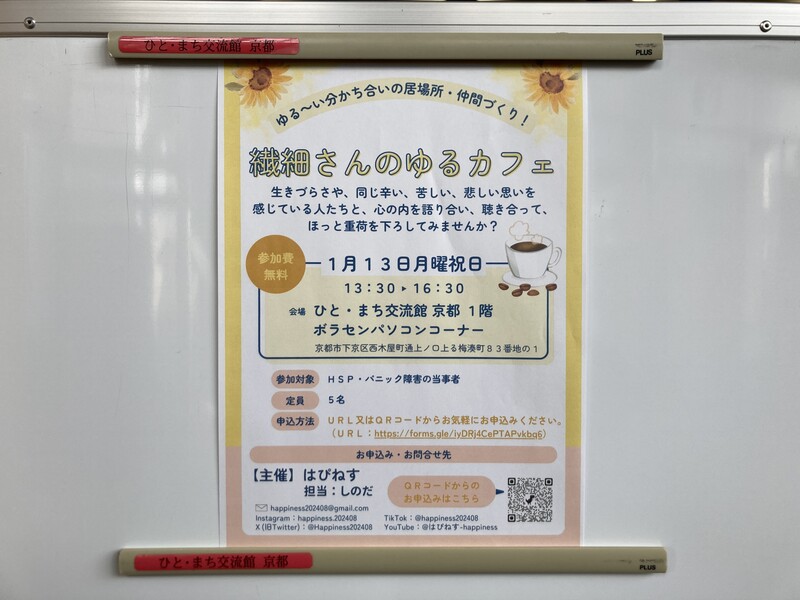 ひと・まち交流館 京都
PLUS
ゆる～い分かち合いの居場所・仲間づくり！
繊細さんのゆるカフェ
生きづらさや、同じ辛い、苦しい、悲しい思いを
感じている人たちと、心の内を語り合い、聴き合って、
ほっと重荷を下ろしてみませんか？
参加費
無料
1月13日月曜祝日
13:30▸16:30
会場 ひと・まち交流館 京都 1階
ボラセンパソコンコーナー
京都市下京区西木屋町通上ノ口上る梅湊町83番地の1
参加対象 HSP・パニック障害の当事者
定員 5名
申込方法 URL又はQRコードからお気軽にお申込みください。
（URL：https://forms.gle/iyDRj4CePTAPvkbq6）
お申込み・お問合せ先
【主催】はぴねす
担当：しのだ
QRコードからの
お申込みはこちら
happiness202408@gmail.com
Instagram：happiness.202408
TikTok：@happiness202408
X (旧Twitter)：@Happiness202408
YouTube：@はぴねす-happiness
ひと・まち交流館 京都
PLUS